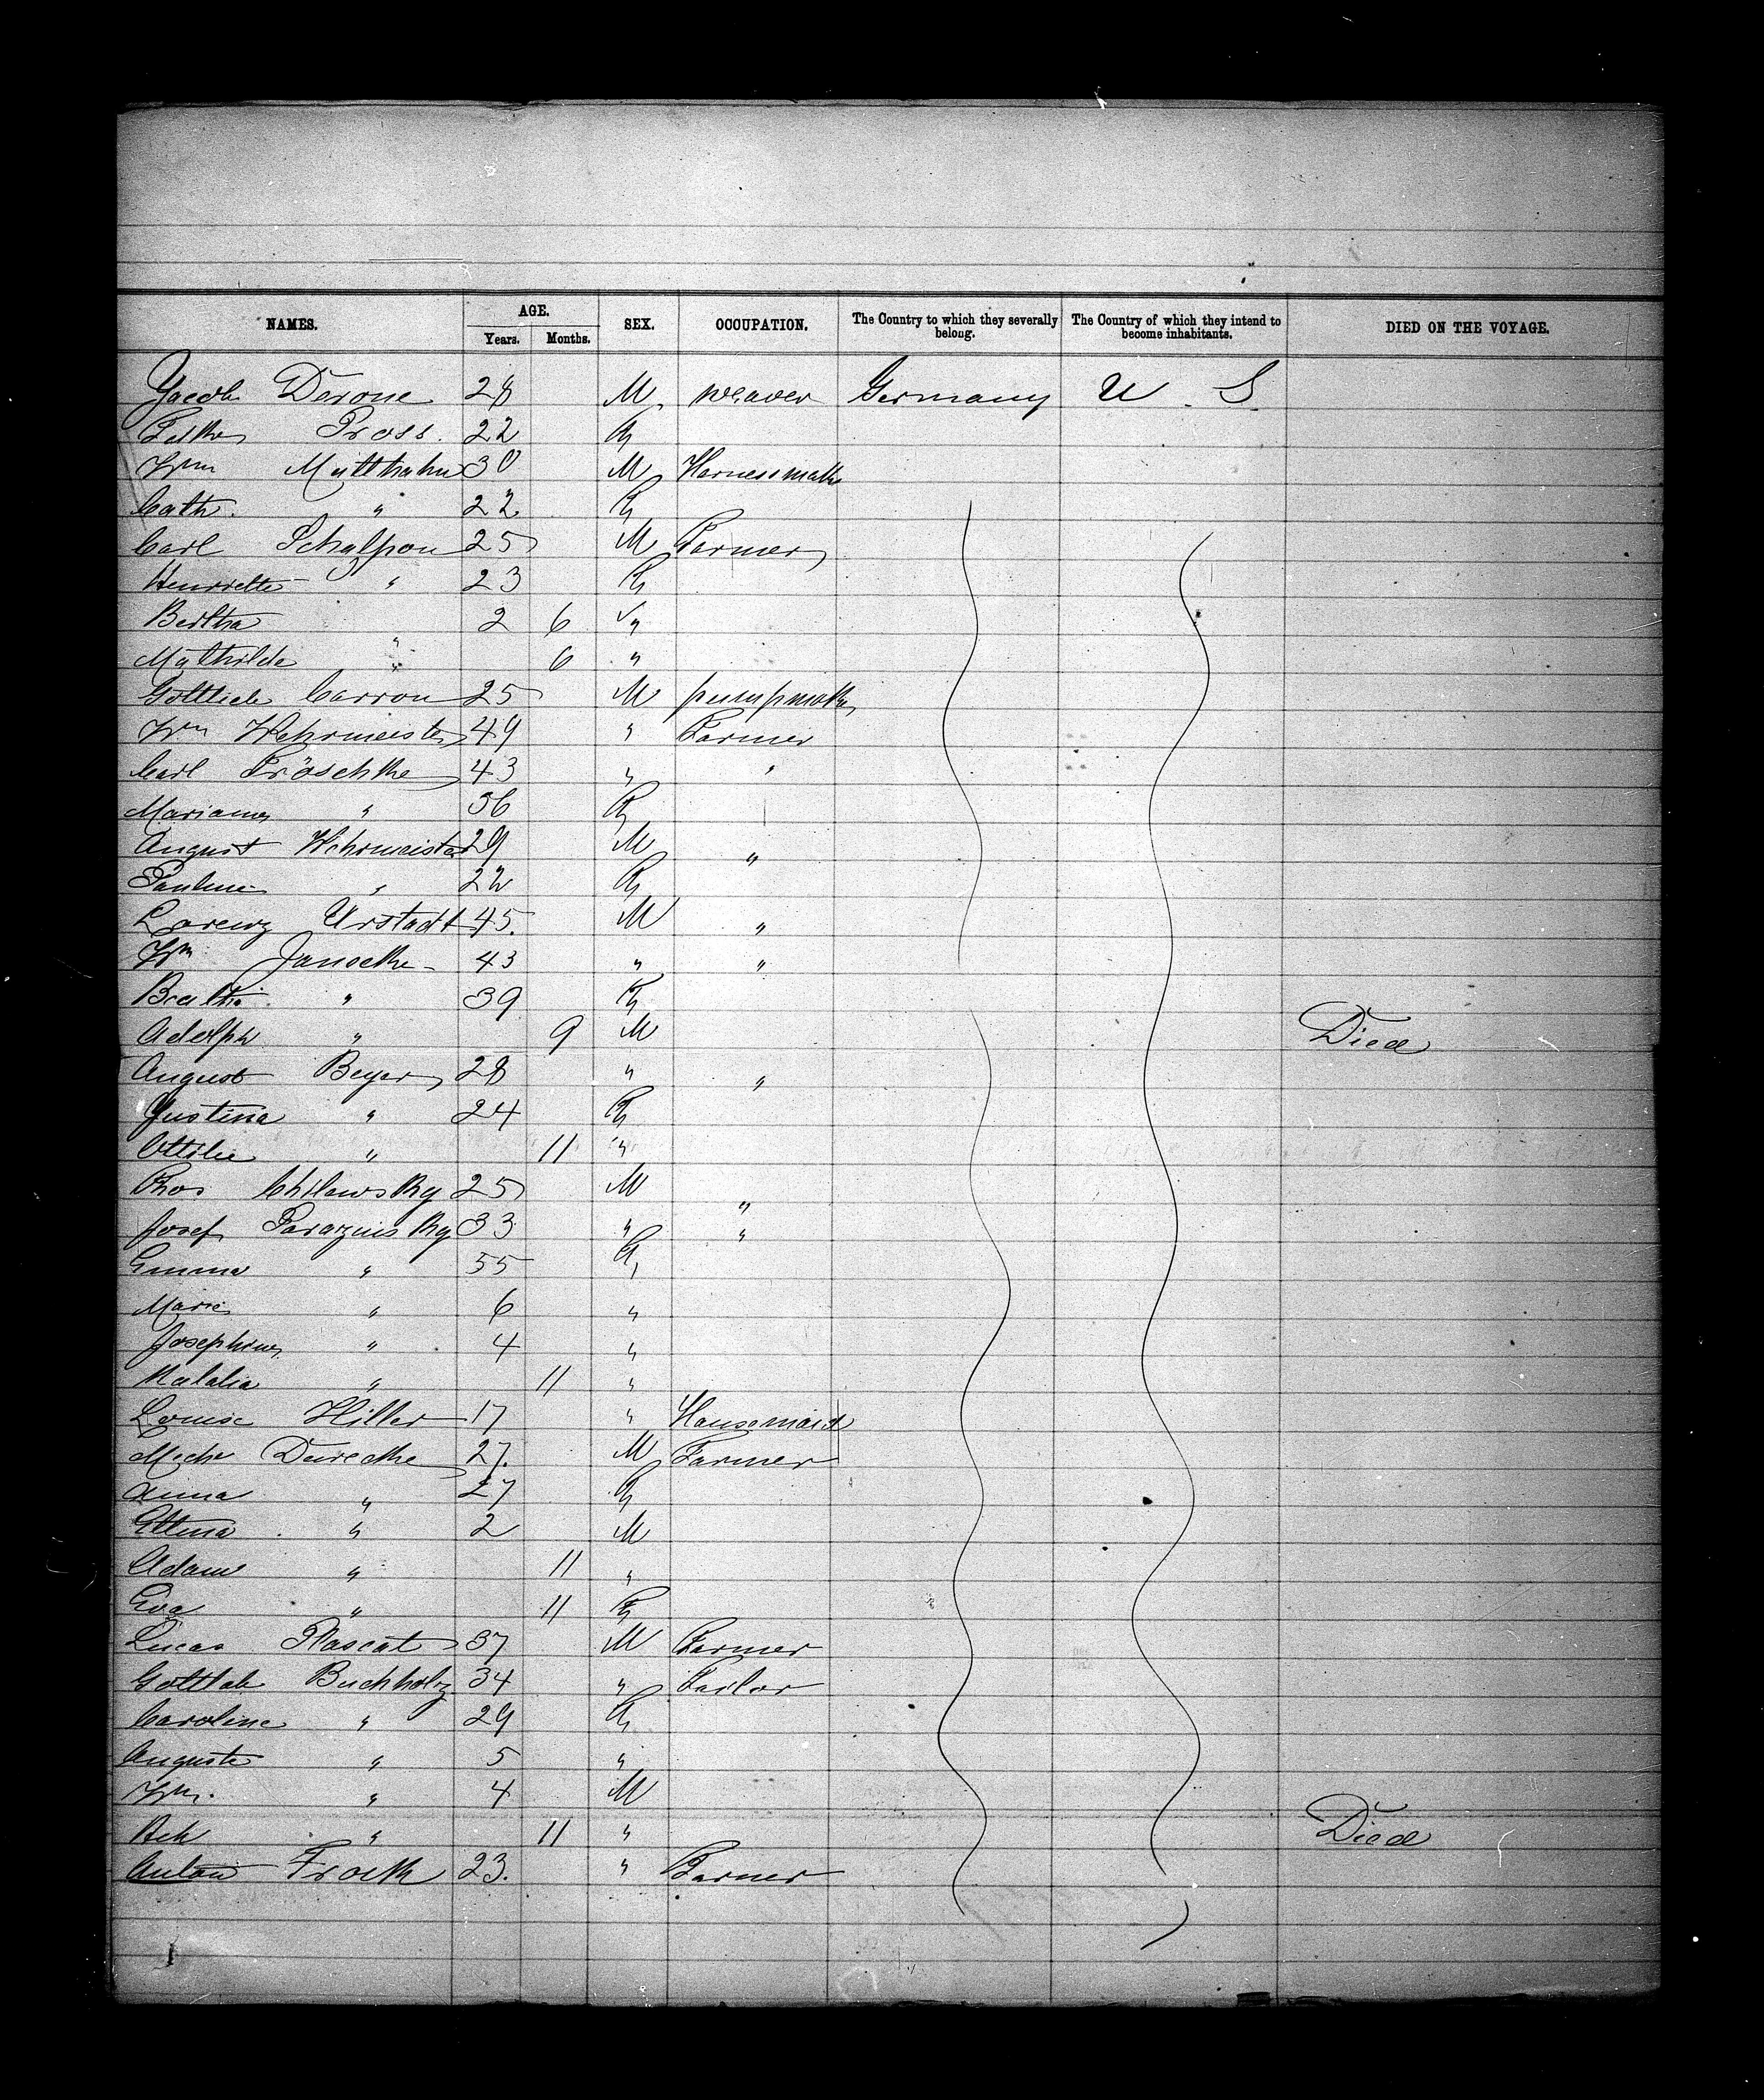 NAMES. AGE. SEX. OCCUPATION. The Country to which they severally belong. The Country of which they intend to become inhabitants. DIED ON THE VOYAGE.
Years. Months.
Jacob Derone 28 M weaver Germany U. S.
Pross. 22 F
Wm Mutthahn 30 M Harnessmak
Cath. " 22 F
Carl 25 M Farmer
Henriette " 23 F
Bertha " 2 6 "
Mathilde " 6 "
Gottlieb Carron 25 M pumpmak
Wm Wehrmeister 49 " Farmer
Carl Fröschke 43 " "
Mariane " 56 F
August Wehrmeister 29 M "
Pauline " 22 F
Lorenz Urstadt 45. M "
Wm Janocke 43 " "
" 39 F
Adolph " 9 M Died
August Beyer 28 " "
Justina " 24 F
Ottilie " 11 "
Chilewsky 25 M "
Josef 33 " "
Emma " 55 F
Marie " 6 "
Josephine " 4 "
" 11 "
Louise Hiller 17 " Housemaid
Mich Durecke 27. M Farmer
Anna " 27 F
" 2 M
Adam " 11 "
Eva " 11 F
Lucas 37 M Farmer
Gottlob Buchholz 34 " Tailor
Caroline " 29 F
Auguste " 5 "
Wm. " 4 M
" 11 " Died
Anton 23. " Farmer